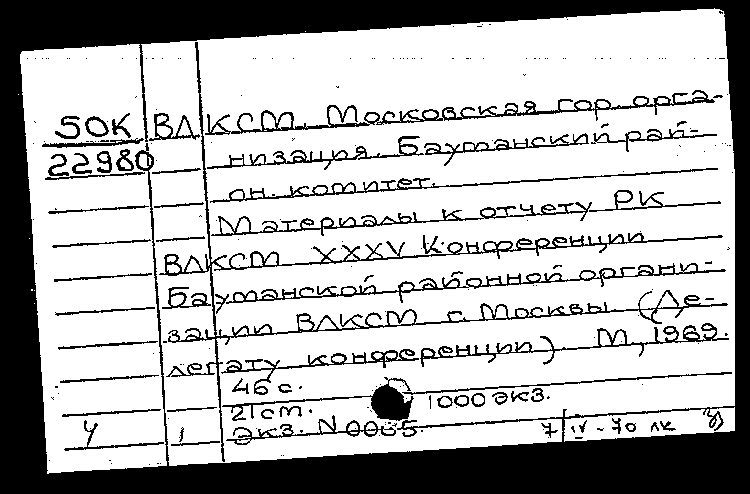 50К ВЛКСМ. Московская гор. орга-
22980 низация. Бауманский рай-
он. комитет.
Материалы к отчету РК
ВЛКСМ XXXV Конференции
Бауманской районной органи-
зации ВЛКСМ г. Москвы. (Де-
легату конференции). М., 1969.
46 с.
21 см. 1000 экз.
У 1 Экз. N 0065. 7/IV-70 лк